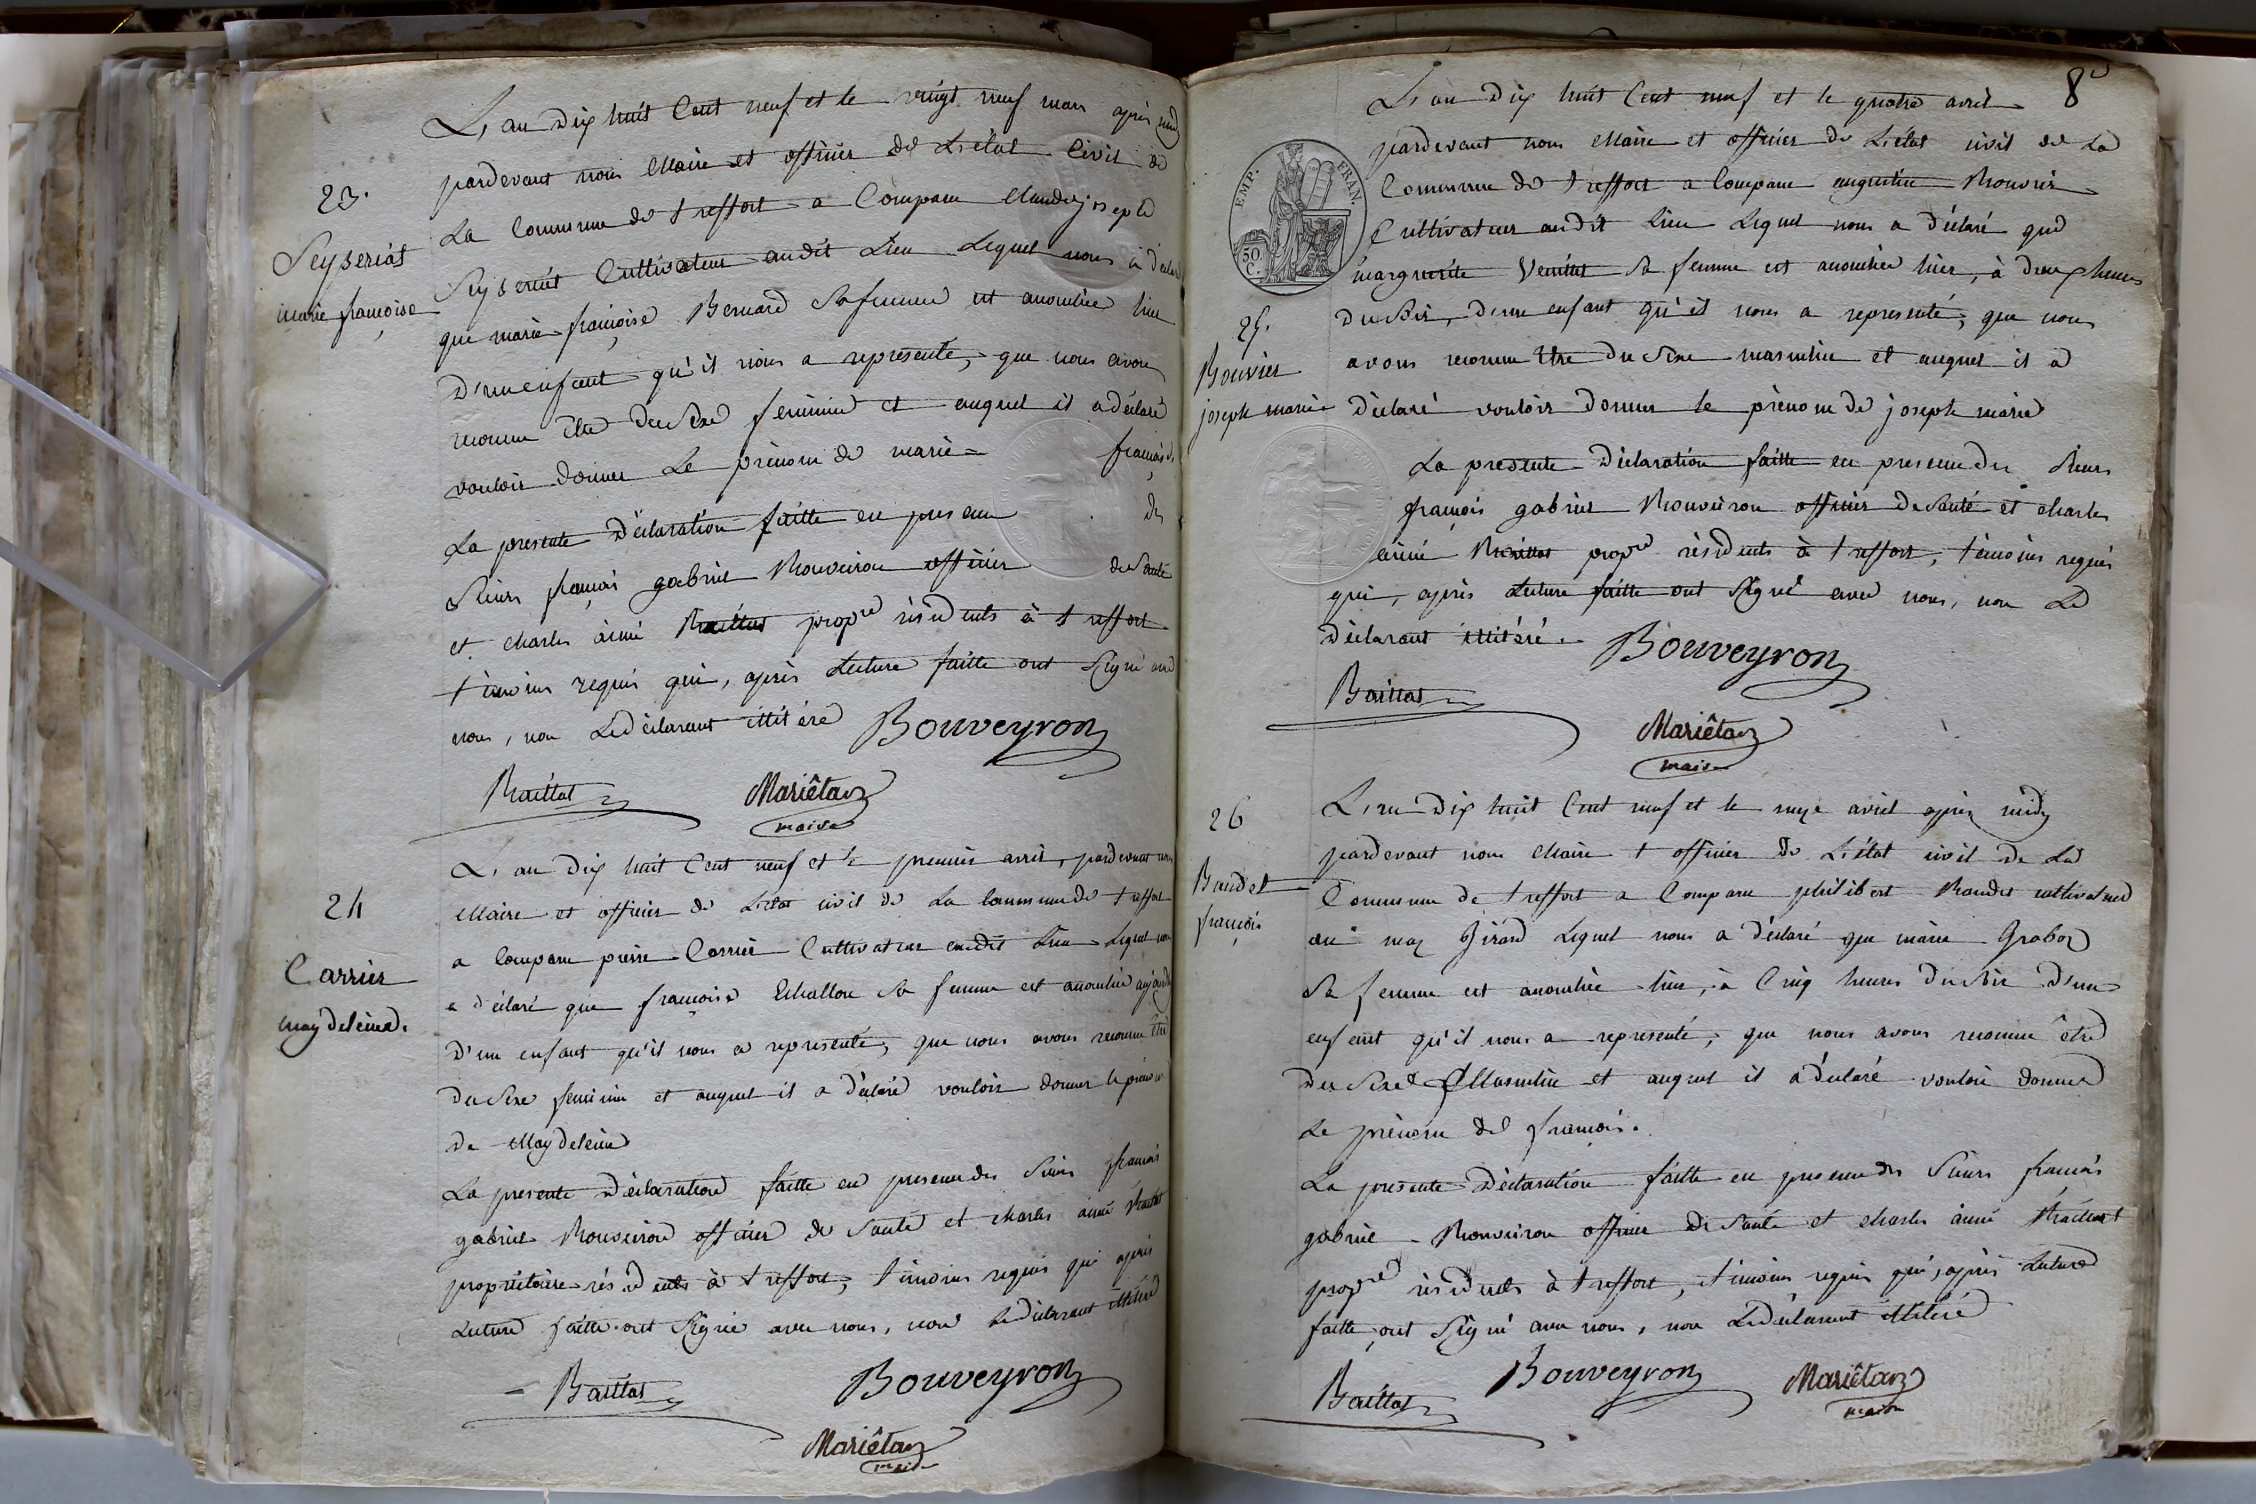 23.
Seyseriat
marie françoise
L'an dix huit Cent neuf et le vingt neuf mars après midy
pardevant nous Maire et officier de L'état Civil de
La Commune de treffort a Comparu Claude joseph
Seyseriat Cultivateur audit Lieu Lequel nous a déclaré
que marie françoise Bernard Sa femme est accouchée hier
D'un enfant qu'il nous a representé, que nous avons
reconnu être du Sexe feminin et auquel il a déclaré
vouloir donner Le prénom de marie = françoise
La presente Déclaration faitte en presence des
Sieurs françois gabriel Bouveiron officier de Santé
et charles aimé Baillat propre résidents à treffort
témoins requis qui, après Lecture faitte ont Signé avec
nous, non Le déclarant illitéré
Bouveyron
Baillat
Mariêtan
maire
24
Carrier
magdeleine.
L'an dix huit Cent neuf et le premier avril, pardevant nous
Maire et officier de L'état civil de La Commune de treffort
a Comparu pierre Carrier Cultivateur audit Lieu Lequel nous
a déclaré que françoise Echallon Sa femme est accouchée
D'un enfant qu'il nous a representé, que nous avons reconnu être
du Sexe feminin et auquel il a déclaré vouloir donner le prénom
de Magdeleine
La presente Déclaration faitte en presence des Sieurs françois
gabriel Bouveiron officier de Santé et charles aimé Baillat
propriétaire résidents à treffort, témoins requis qui après
Lecture faitte ont Signé avec nous, non Le déclarant illitéré
Baillat
Bouveyron
Mariêtan
maire
8
L'an Dix huit Cent neuf et le quatre avril
pardevant nous Maire et officier de L'état civil de La
Commune de treffort a Comparu augustin Bouvier
Cultivateur audit Lieu Lequel nous a déclaré que
marguerite Sa femme est accouchée hier, à deux heures
du Soir, D'un enfant qu'il nous a representé, que nous
avons reconnu Etre du Sexe masculin et auquel il a
déclaré vouloir donner le prénom de joseph marie
EMP. FRAN.
50. C.
25.
Bouvier
joseph marie
La presente Déclaration faitte en presence des Sieurs
françois gabriel Bouveiron officier de Santé et charles
aimé Baillat propre résidents à treffort, témoins requis
qui, après Lecture faitte ont Signé avec nous, non Le
déclarant illitéré.
Bouveyron
Baillat
Mariêtan
maire
26
Baudet
françois
L'an Dix huit Cent neuf et le avril après midy
pardevant nous Maire & officier de L'état civil de La
Commune de treffort a Comparu philibert Baudet cultivateur
au Girard Lequel nous a déclaré que marie
Sa femme est accouchée hier, à Cinq heures du Soir D'un
enfant qu'il nous a representé, que nous avons reconnu être
du Sexe Masculin et auquel il a déclaré vouloir donner
Le prénom de françois.
La presente Déclaration faitte en presence des Sieurs françois
gabriel Bouveiron officier de Santé et charles aimé Baillat
propre résidents à treffort, témoins requis qui, après Lecture
faitte ont Signé avec nous, non Le déclarant illitéré
Bouveyron
Baillat
Mariêtan
maire